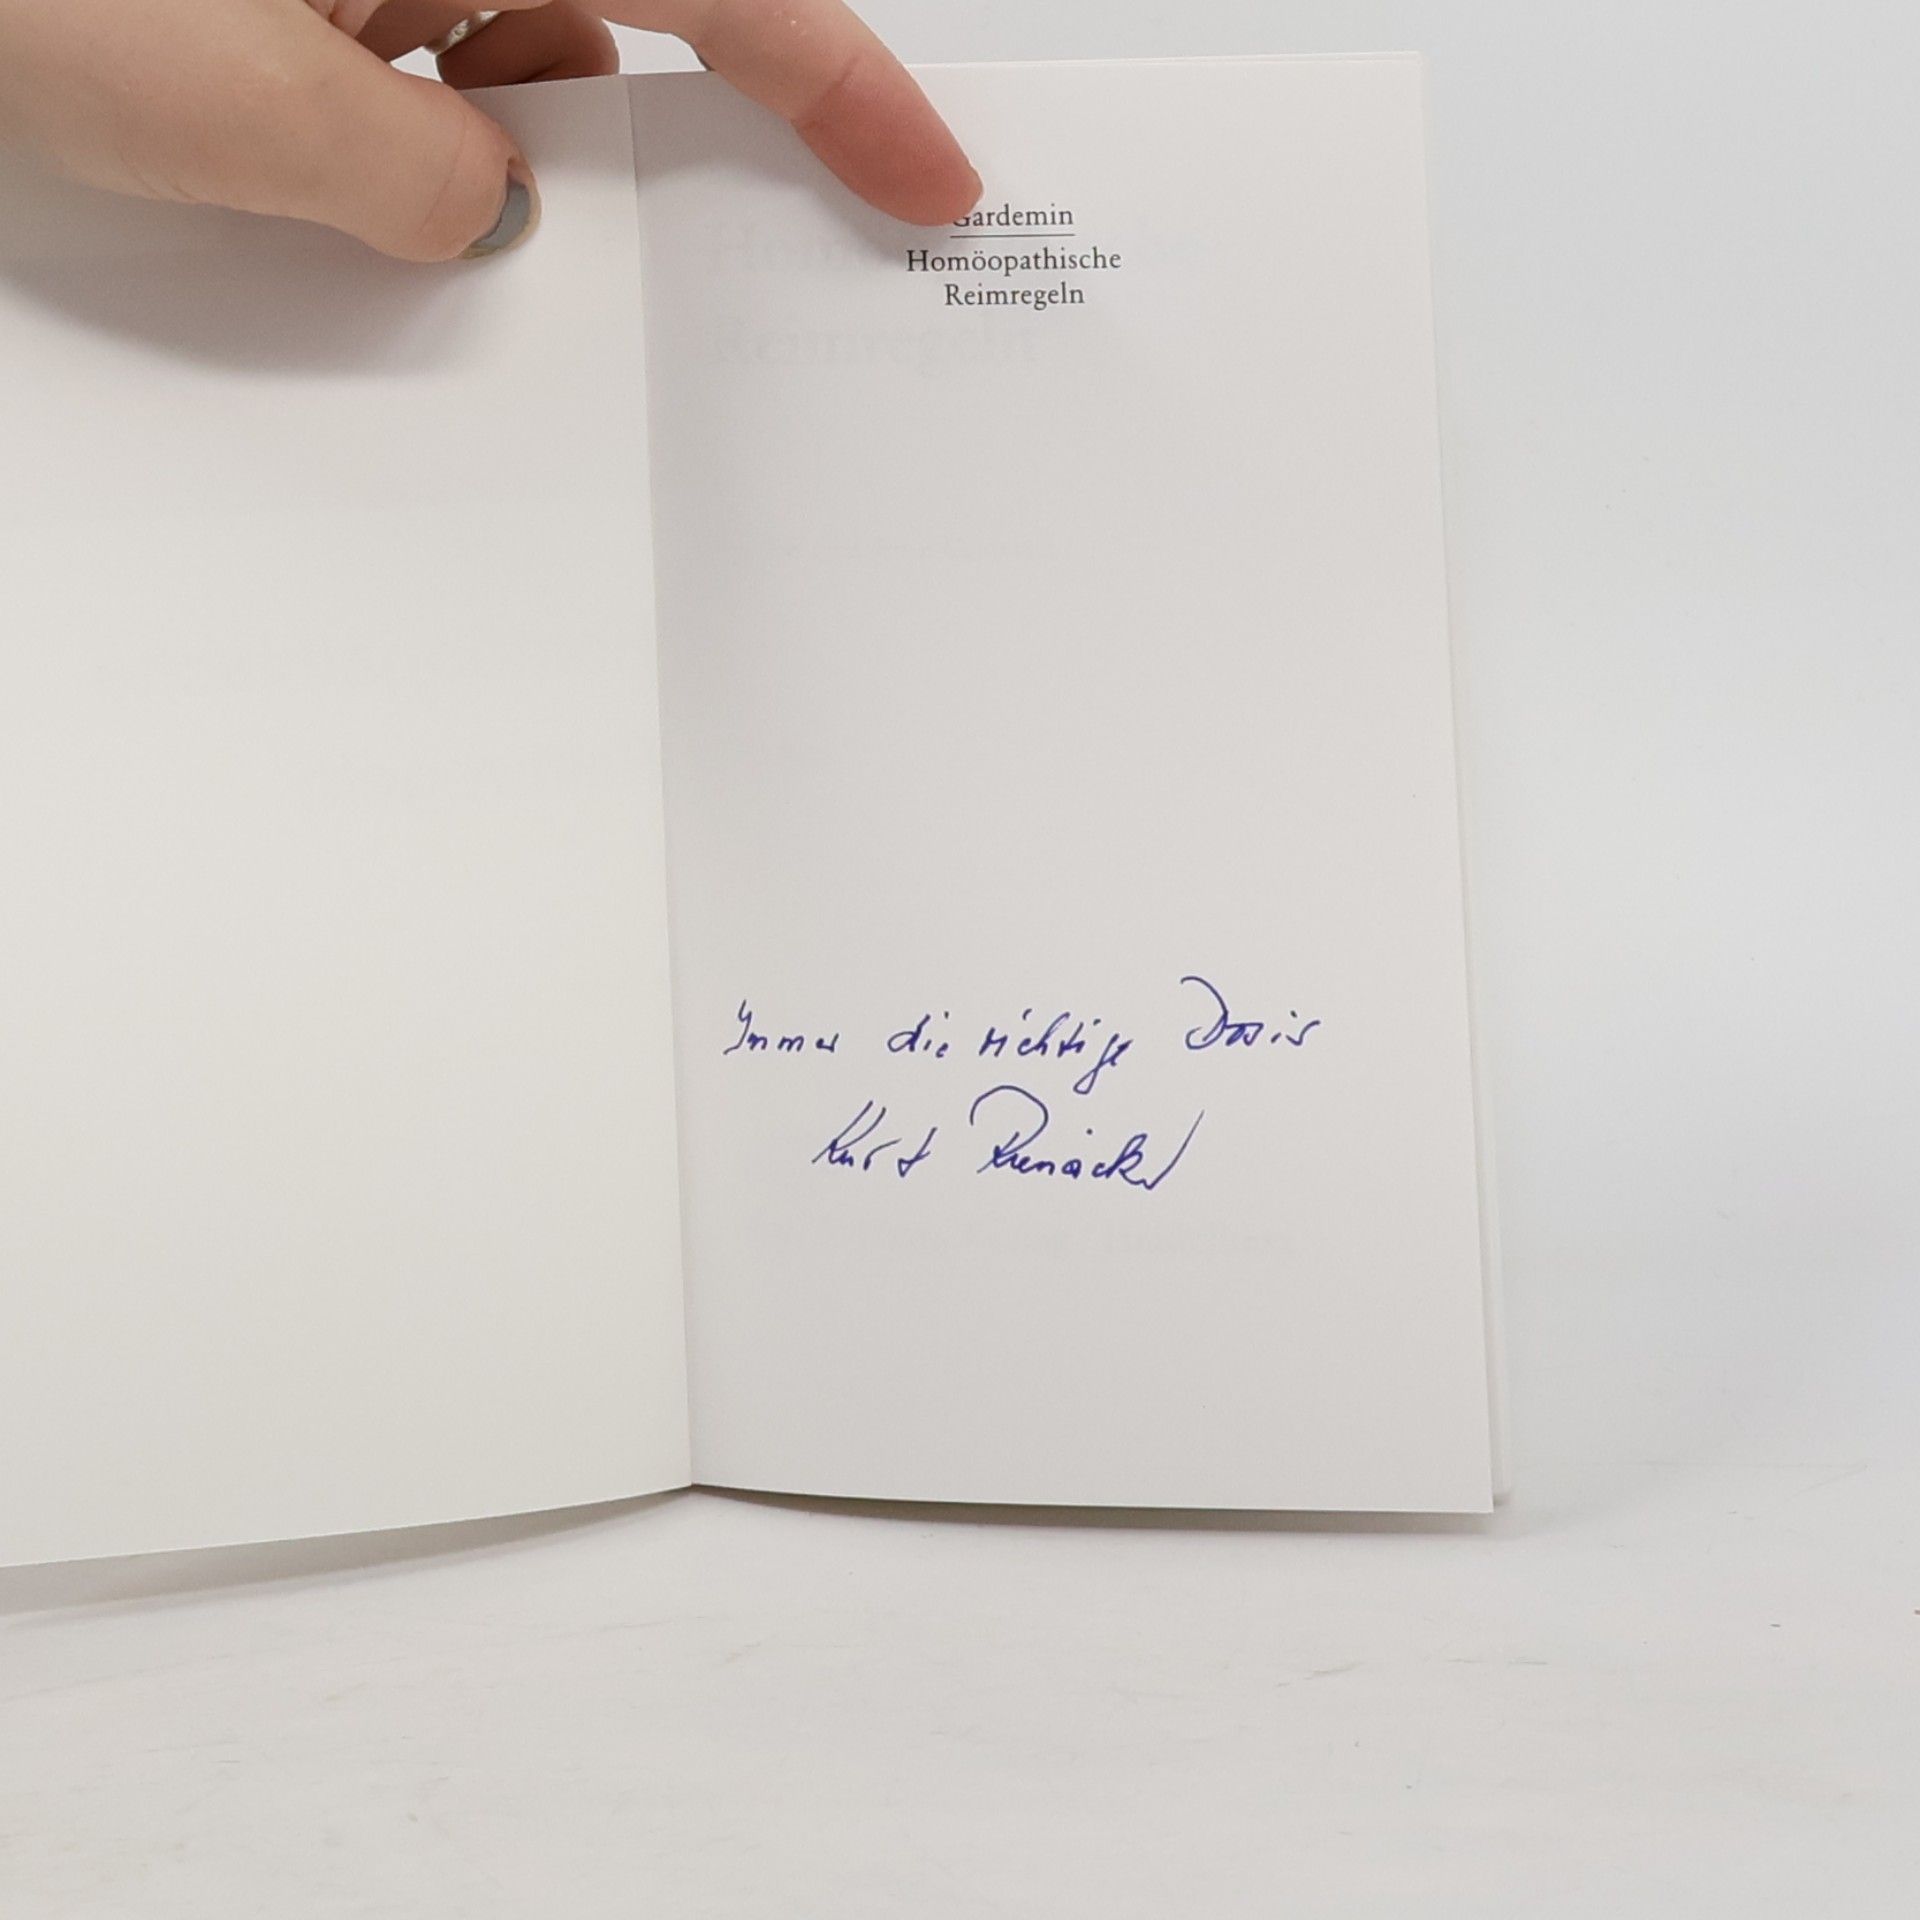 Gardemin
Homöopathische
Reimregeln
Immer die richtige Dosis
Kurt